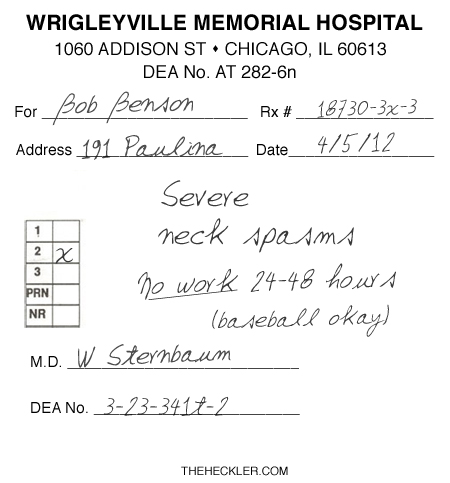 WRIGLEYVILLE MEMORIAL HOSPITAL
1060 ADDISON ST ♦ CHICAGO, IL 60613
DEA No. AT 282-6n
For Bob Benson Rx # 18730-3x-3
Address 191 Paulina Date 4/5/12
Severe
neck spasms
no work 24-48 hours
(baseball okay)
1
2 x
3
PRN
NR
M.D. W Sternbaum
DEA No. 3-23-341t-2
THEHECKLER.COM